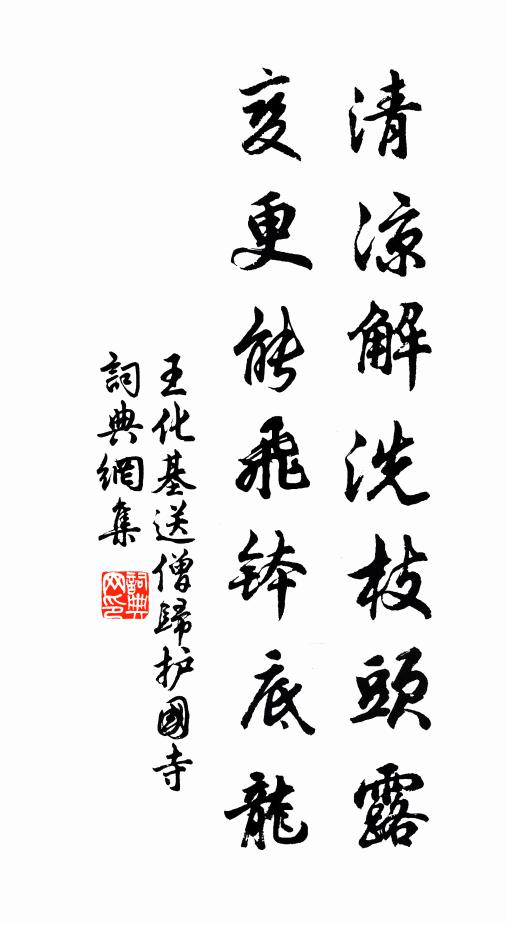 清涼解洗枝頭露
变更能飛钵底龍
王化基送僧歸护國寺
詞典網集
詞典网印